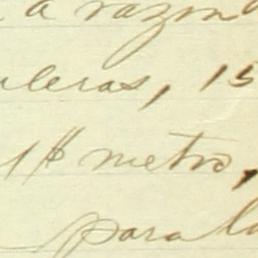 a razon
uleras, 15
1$ metro,
para la